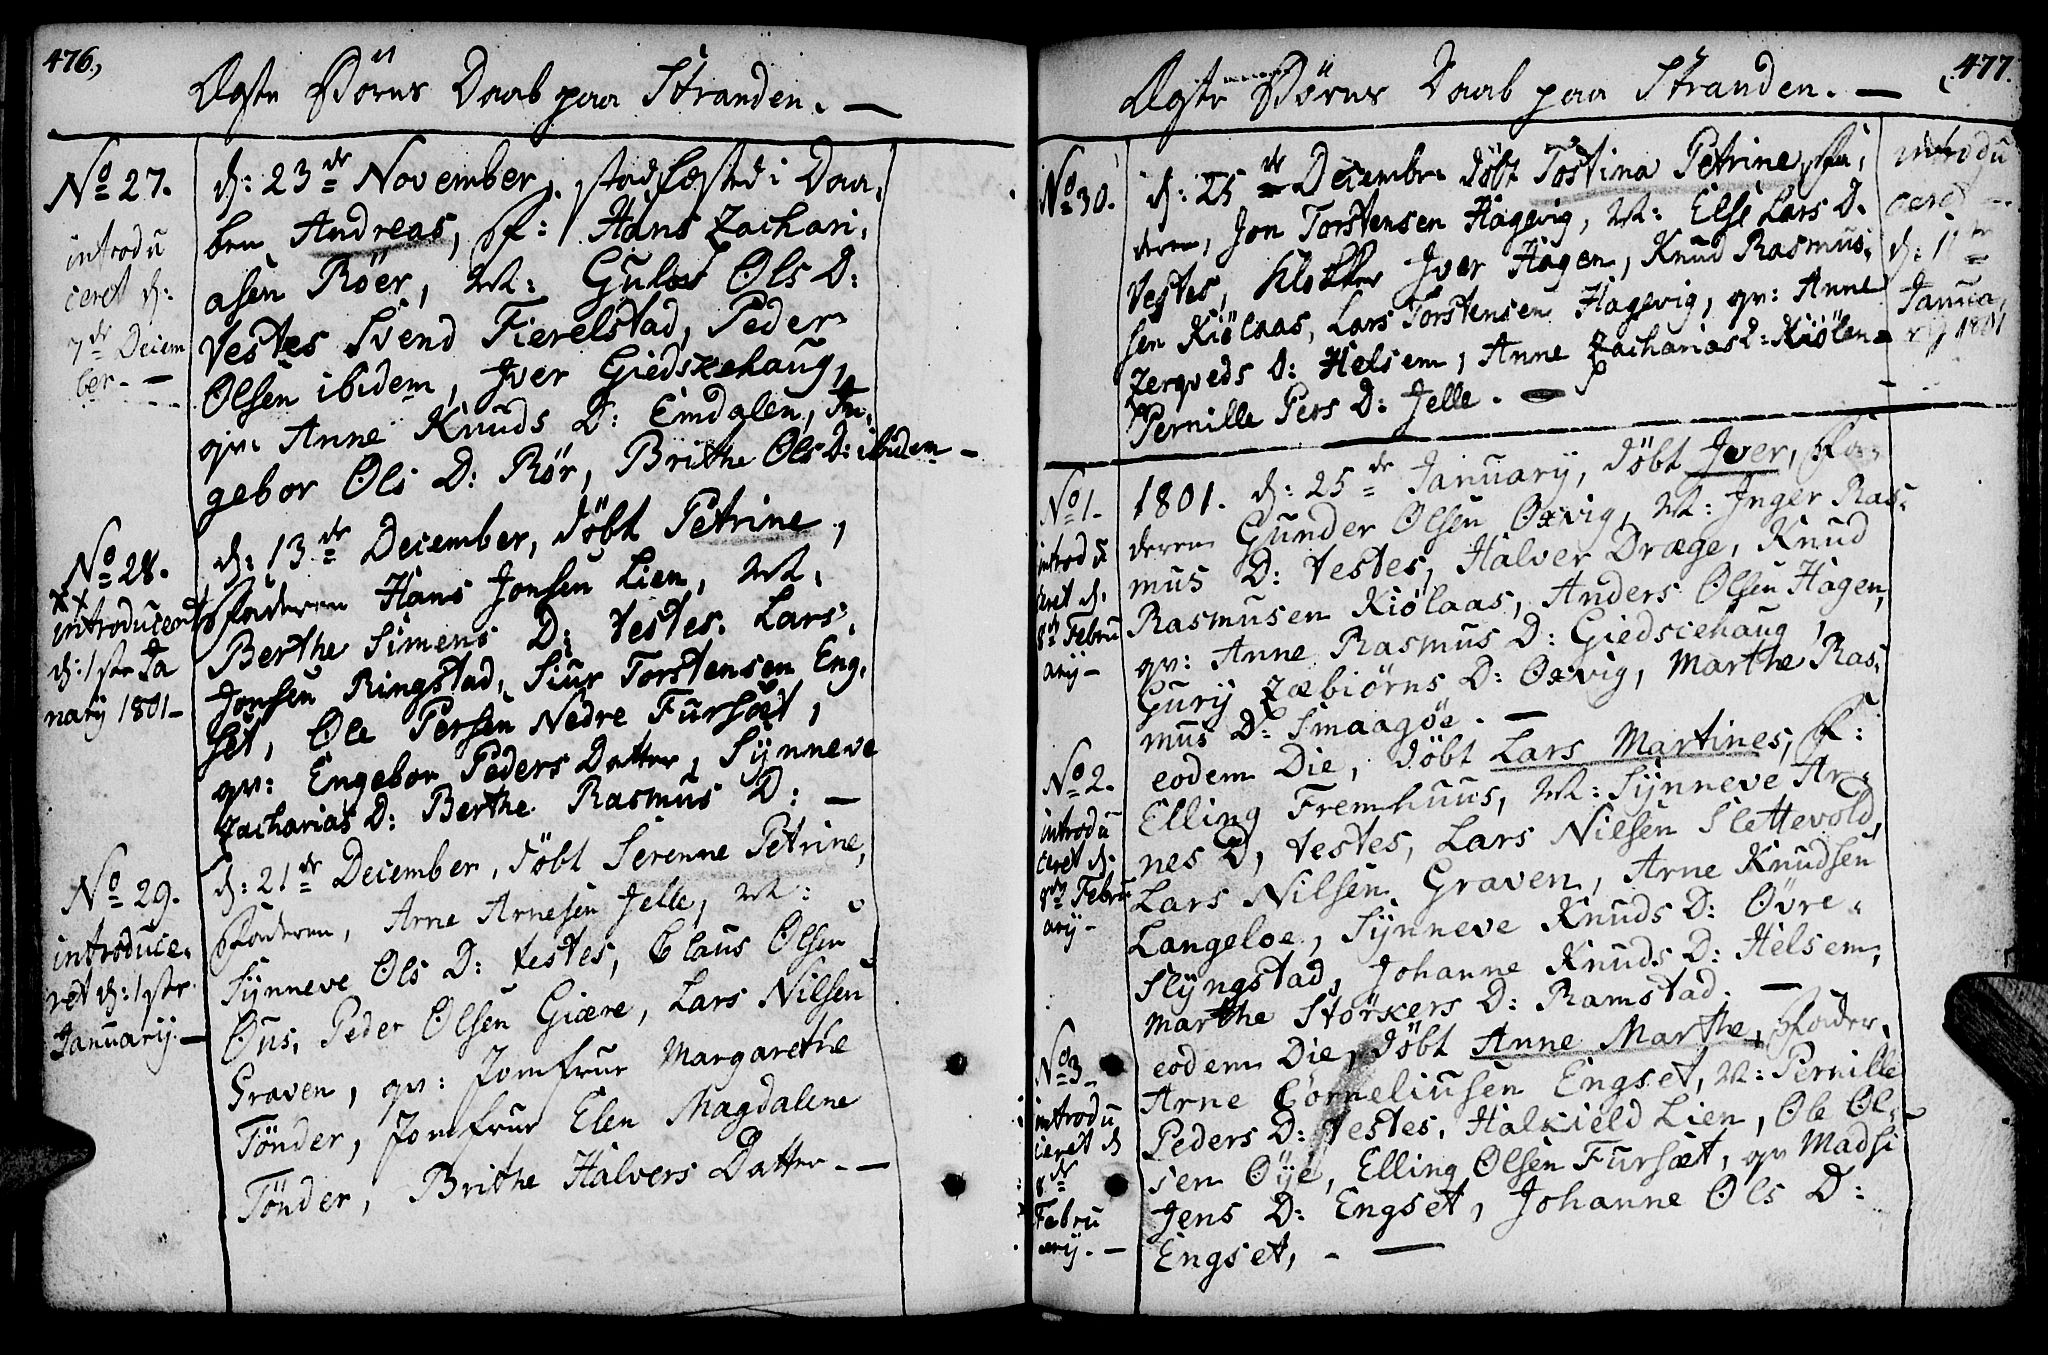 476.
Ægte Børns Daab paa Stranden. —
No 27.
introdu
ceret d:
7de Decem
ber. —
d: 23de November, stadfæsted i Daa,
ben Andreas, F: Hans Zachari,
asen Röer, M: Guloe Ols D:
Testes Svend Fierelstad, Peder
Olsen ibidem, Jver Giedscehaug,
qv: Anne Knuds D: Emdalen, In,
gebor Ols D: Rör, Brithe Ols D: ibidem —
No 28.
introduceret
d: 1ste Ja
nuarÿ 1801 —
d: 13de December, döbt Petrine,
Faderen Hans Jonsen Lien, M.
Berthe Simens D: Testes. Lars
Jonsen Ringstad, Siur Torstensen Eng,
set, Ole Persen Nedre Fursæt,
qv: Engebor Peders Datter, Sÿnneve
Zacharias D: Berthe Rasmus D: —
No 29.
introduce,
ret d: 1ste
Januarÿ. —
d: 21de December, döbt Serenne Petrine,
Faderen, Arne Arnesen Jelle, M:
Sÿnneve Ols D: testes, Claus Olsen
Øus, Peder Olsen Giære, Lars Nilsen
Graven, qv: Jomfrue Margarethe
Tönder, Jomfrue Elen Magdalene
Tönder, Brithe Halvers Datter. —
477.
Ægte Børns Daab paa Stranden. —
No 30.
d: 25de December döbt Tostina Petrine, Fa,
deren, Jon Torstensen Hagevig, M: Else Lars D.
Testes, Klokker Jver Hagen, Knud Rasmus,
sen Kiölaas, Lars Torstensen Hagevig, qv: Anne
Zerqveds D: Helsem, Anne Zacharias D: Kiölen
Pernille Pers D: Jelle. —
introdu
ceret
d: 11te
Janua,
rÿ 1801
No 1.
introdu
ceret d.
8de Febru
arÿ —
1801. d: 25de Januarÿ, döbt Jver, Fa,
deren Gunder Olsen Oxvig, M: Jnger Ras,
mus D: Testes, Halver Dræge, Knud
Rasmusen Kiölaas, Anders Olsen Hagen,
qv: Anne Rasmus D: Giedscehaug,
Gurÿ Zæbiörns D: Oxvig, Marthe Ras,
mus D: Smaagöe. —
No 2.
introdu
ceret d.
8de Febru
arÿ —
eodem Die, döbt Lars Martines, F:
Elling Fremhuus, M: Sÿnneve Ar,
nes D, testes, Lars Nilsen Slettevold,
Lars Nilsen Graven, Arne Knudsen
Langeloe, Sÿnneve Knuds D: Övre
Slÿngstad, Johanne Knuds D: Helsem,
Marthe Störkers D: Ramstad. —
No 3.
introdu
ceret d
8de
Febru
arÿ. —
eodem Die, döbt Anne Marthe, Fader,
Arne Corneliusen Engset, M: Pernille
Peders D: Testes, Halkield Lien, Ole Ol,
sen Öÿe, Elling Olsen Fursæt, qv Madsi
Jens D: Engset, Johanne Ols D:
Engset, — —